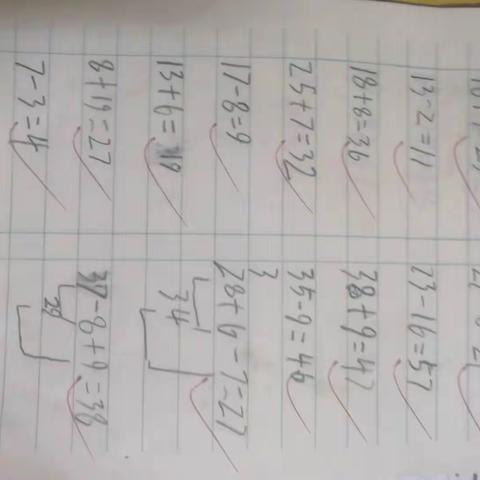 13-2=11 23-16=57
18+8=36 38+9=47
25+7=32 35-9=46
3
17-8=9 28+6-7=27
13+6=19 34
8+19=27 37-8+9=38
7-3=4 29